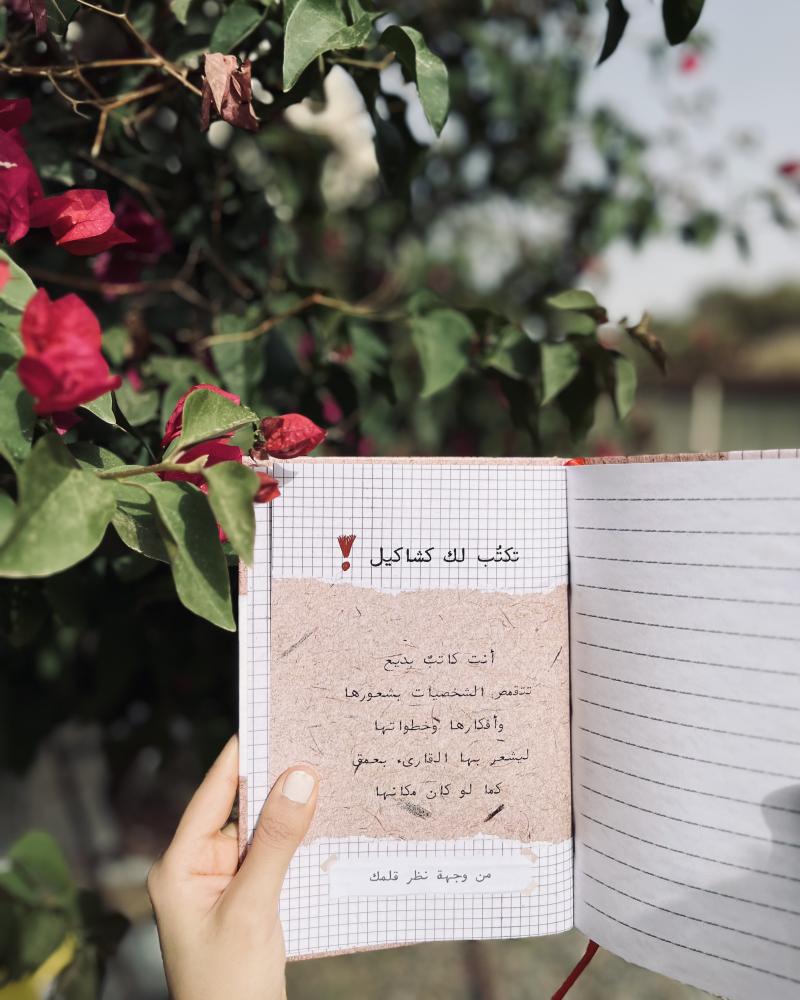 تكتُب لك كشاكيل
أنت كاتبٌ بديع
تتقمص الشخصيات بشعورها
وأفكارها وخطواتها
ليشعر بها القارىء بعمق
كما لو كان مكانها
من وجهة نظر قلمك